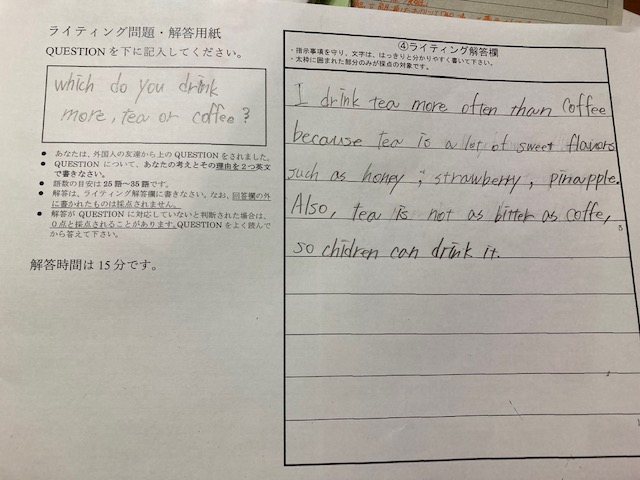 ライティング問題・解答用紙
QUESTION を下に記入してください。
which do you drink
more, tea or coffee?
● あなたは、外国人の友達から上の QUESTION をされました。
● QUESTION について、あなたの考えとその理由を２つ英文
で書きなさい。
● 語数の目安は 25 語～35 語です。
● 解答は、ライティング解答欄に書きなさい。なお、回答欄の外
に書かれたものは採点されません。
● 解答が QUESTION に対応していないと判断された場合は、
０点と採点されることがあります。QUESTION をよく読んで
から答えて下さい。
解答時間は 15 分です。
④ライティング解答欄
・指示事項を守り、文字は、はっきりと分かりやすく書いて下さい。
・太枠に囲まれた部分のみが採点の対象です。
I drink tea more often than coffee
because tea is a lot of sweet flavors
such as honey, strawberry, pinapple.
Also, tea is not as bitter as coffe,
5
so chidren can drink it.